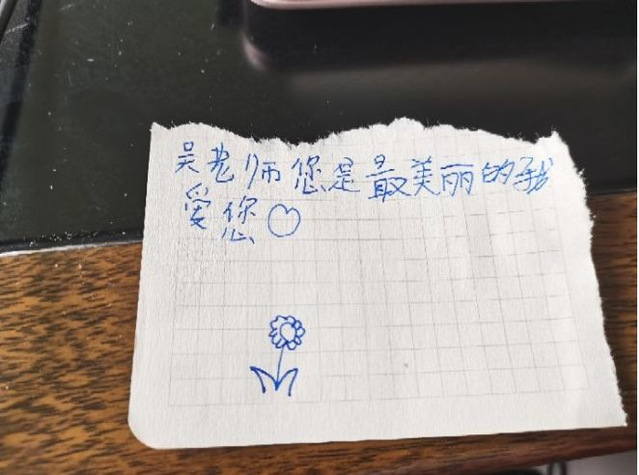 吴老师您是最美丽的我
爱您